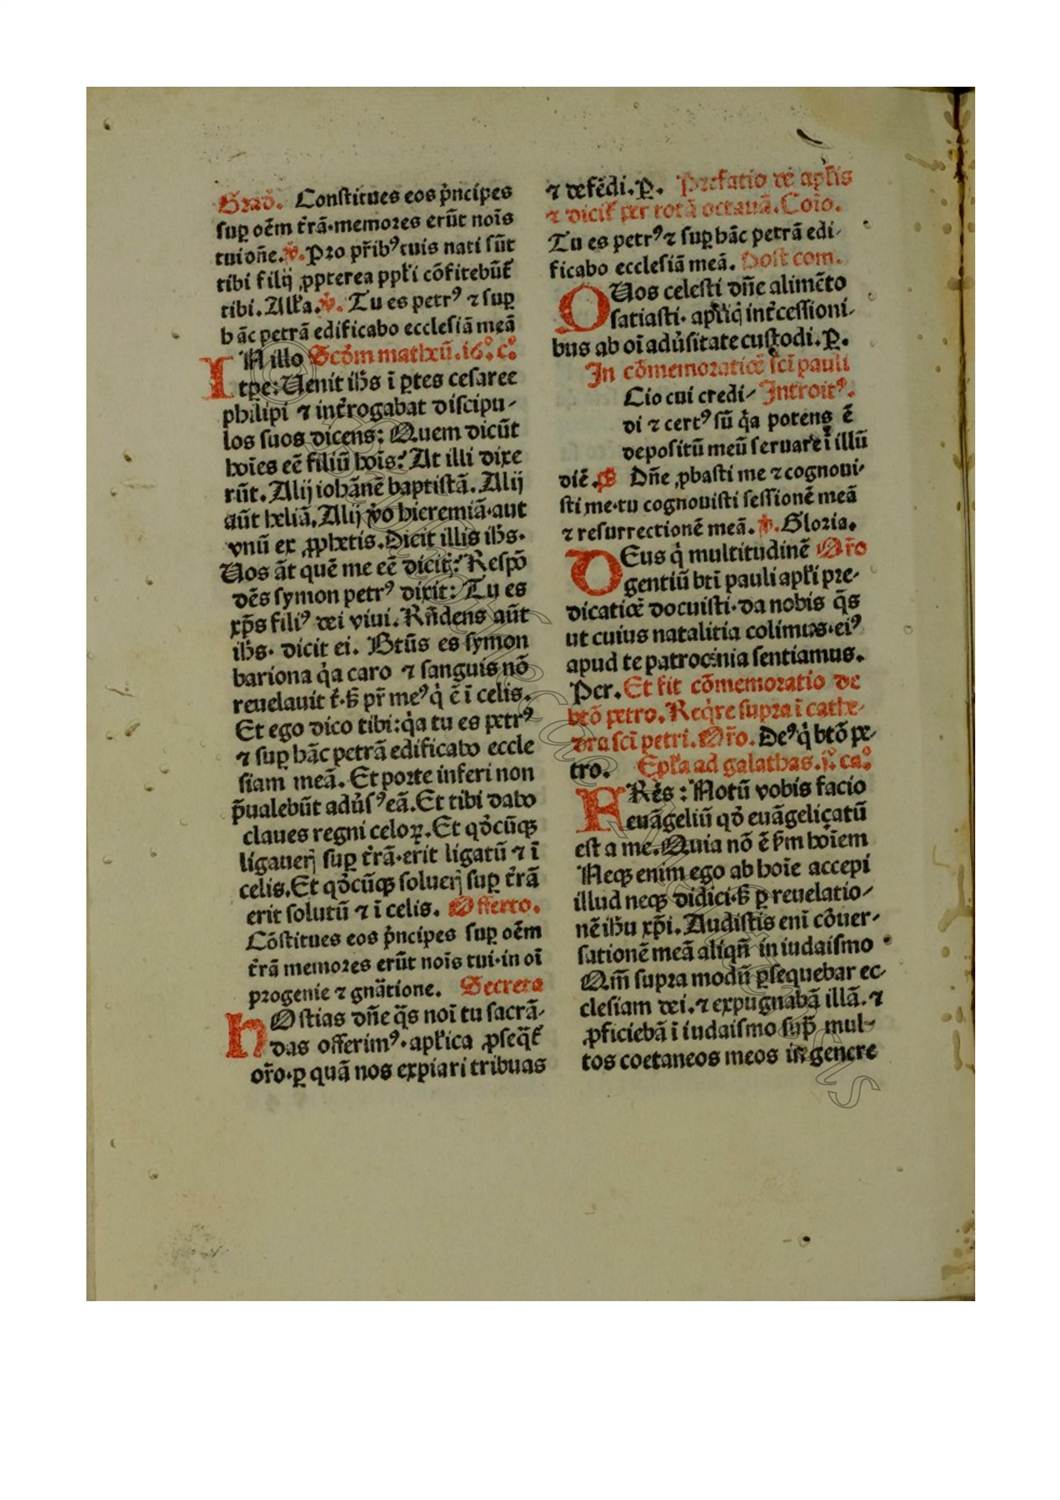 Grad̃. Conſtitues eos p̃ncipes
ſuꝑ oẽm t̃rã·memores erũt nois
tui dñe.℣.Pro pr̃ibꝰtuis nati ſũt
tibi filij ꝓpterea ppl̃i cõfitebũt̃
tibi.All̃a.℣. Tu es petrꝰ ⁊ ſuꝑ
hãc petrã edificabo eccleſiã meã
IN illo Scd̃m matheũ.16.c.
tp̃e:Uenit ih̃s ĩ ꝑtes ceſaree
philipi ⁊ int̃rogabat diſcipu-
los ſuos dicens: Quem dicũt
hoĩes eẽ filiũ hoĩs? At illi dixe
rũt.Alij iohãnẽ baptiſtã.Alij
aũt heliã.Alij ṽo hieremiã·aut
vnũ ex ꝓphetis.Dicit illis ih̃s·
Uos ãt quẽ me eẽ dicit̃? Reſpõ
dẽs ſymon petrꝰ dixit: Tu es
xp̃s filiꝰ dei viui. Rñdens aũt
ih̃s· dicit ei. Btũs es ſymon
bariona q̃a caro ⁊ ſanguis nõ
reuelauit t̃·ẞ pr̃ meꝰq̃ ẽ ĩ celis.
Et ego dico tibi:q̃a tu es petrꝰ
⁊ ſuꝑ hãc petrã edificabo eccle
ſiam meã. Et porte inferi non
p̃ualebũt adũſꝰeã.Et tibi dabo
claues regni celoꝝ.Et qd̃cũqꝫ
ligauerj ſuꝑ t̃rã·erit ligatũ ⁊ ĩ
celis.Et qd̃cũqꝫ ſoluerj ſuꝑ t̃rã
erit ſolutũ ⁊ ĩ celis. Offerto.
Cõſtitues eos p̃ncipes ſuꝑ oẽm
t̃rã memores erũt noĩs tui·in oĩ
progenie ⁊ gñatione. Secreta
hOſtias dñe q̃s noĩ tu ſacrã-
das offerimꝰ·apl̃ica ꝓſeq̃t̃
or̃o·ꝑ quã nos expiari tribuas
⁊ defẽdi.P̲. Prefatio de apl̃is
⁊ dicit̃ per totã octauã.Coĩo.
Tu es petrꝰ⁊ ſuꝑ hãc petrã edi-
ficabo eccleſiã meã. Poſt com.
QUos celeſti dñe alimẽto
ſatiaſti· apl̃iq̃ int̃ceſſioni-
bus ab oĩ adũſitate cuſtodi.P̲.
In cõmemoratiõe ſc̃i pauli
Cio cui credi- Introitꝰ.
di ⁊ certꝰ ſũ q̃a potens ẽ
depoſitũ meũ ſeruare ĩ illũ
diẽ. Dñe ꝓbaſti me ⁊ cognoui-
ſti me·tu cognouiſti ſeſſionẽ meã
⁊ reſurrectionẽ meã.℣.Gloria.
DEus q̃ multitudinẽ Or̃o
gentiũ bt̃i pauli apl̃i pre-
dicatiõe docuiſti·da nobis q̃s
ut cuius natalitia colimus·eiꝰ
apud te patrocinia ſentiamus.
Per.Et fit cõmemoratio de
btõ petro.Req̃re ſupra ĩ cathe-
dra ſc̃i petri.Or̃o.Deꝰq̃ btõ pe-
tro. Epl̃a ad galathas.j. ca.
FRẽs : Notũ vobis facio
euãgeliũ qd̃ euãgelicatũ
eſt a me.Quia nõ ẽ ẞm hoĩem
Neqꝫ enim ego ab hoĩe accepi
illud neqꝫ didici·ẞ ꝑ reuelatio-
nẽ ih̃u xp̃i. Audiſtis eni cõuer-
ſationẽ meã aliqñ in iudaiſmo
Qm̃ ſupra modũ ꝑſequebar ec-
cleſiam dei.⁊ expugnabã illã.⁊
ꝓficiebã ĩ iudaiſmo ſup̃ mul-
tos coetaneos meos in genere